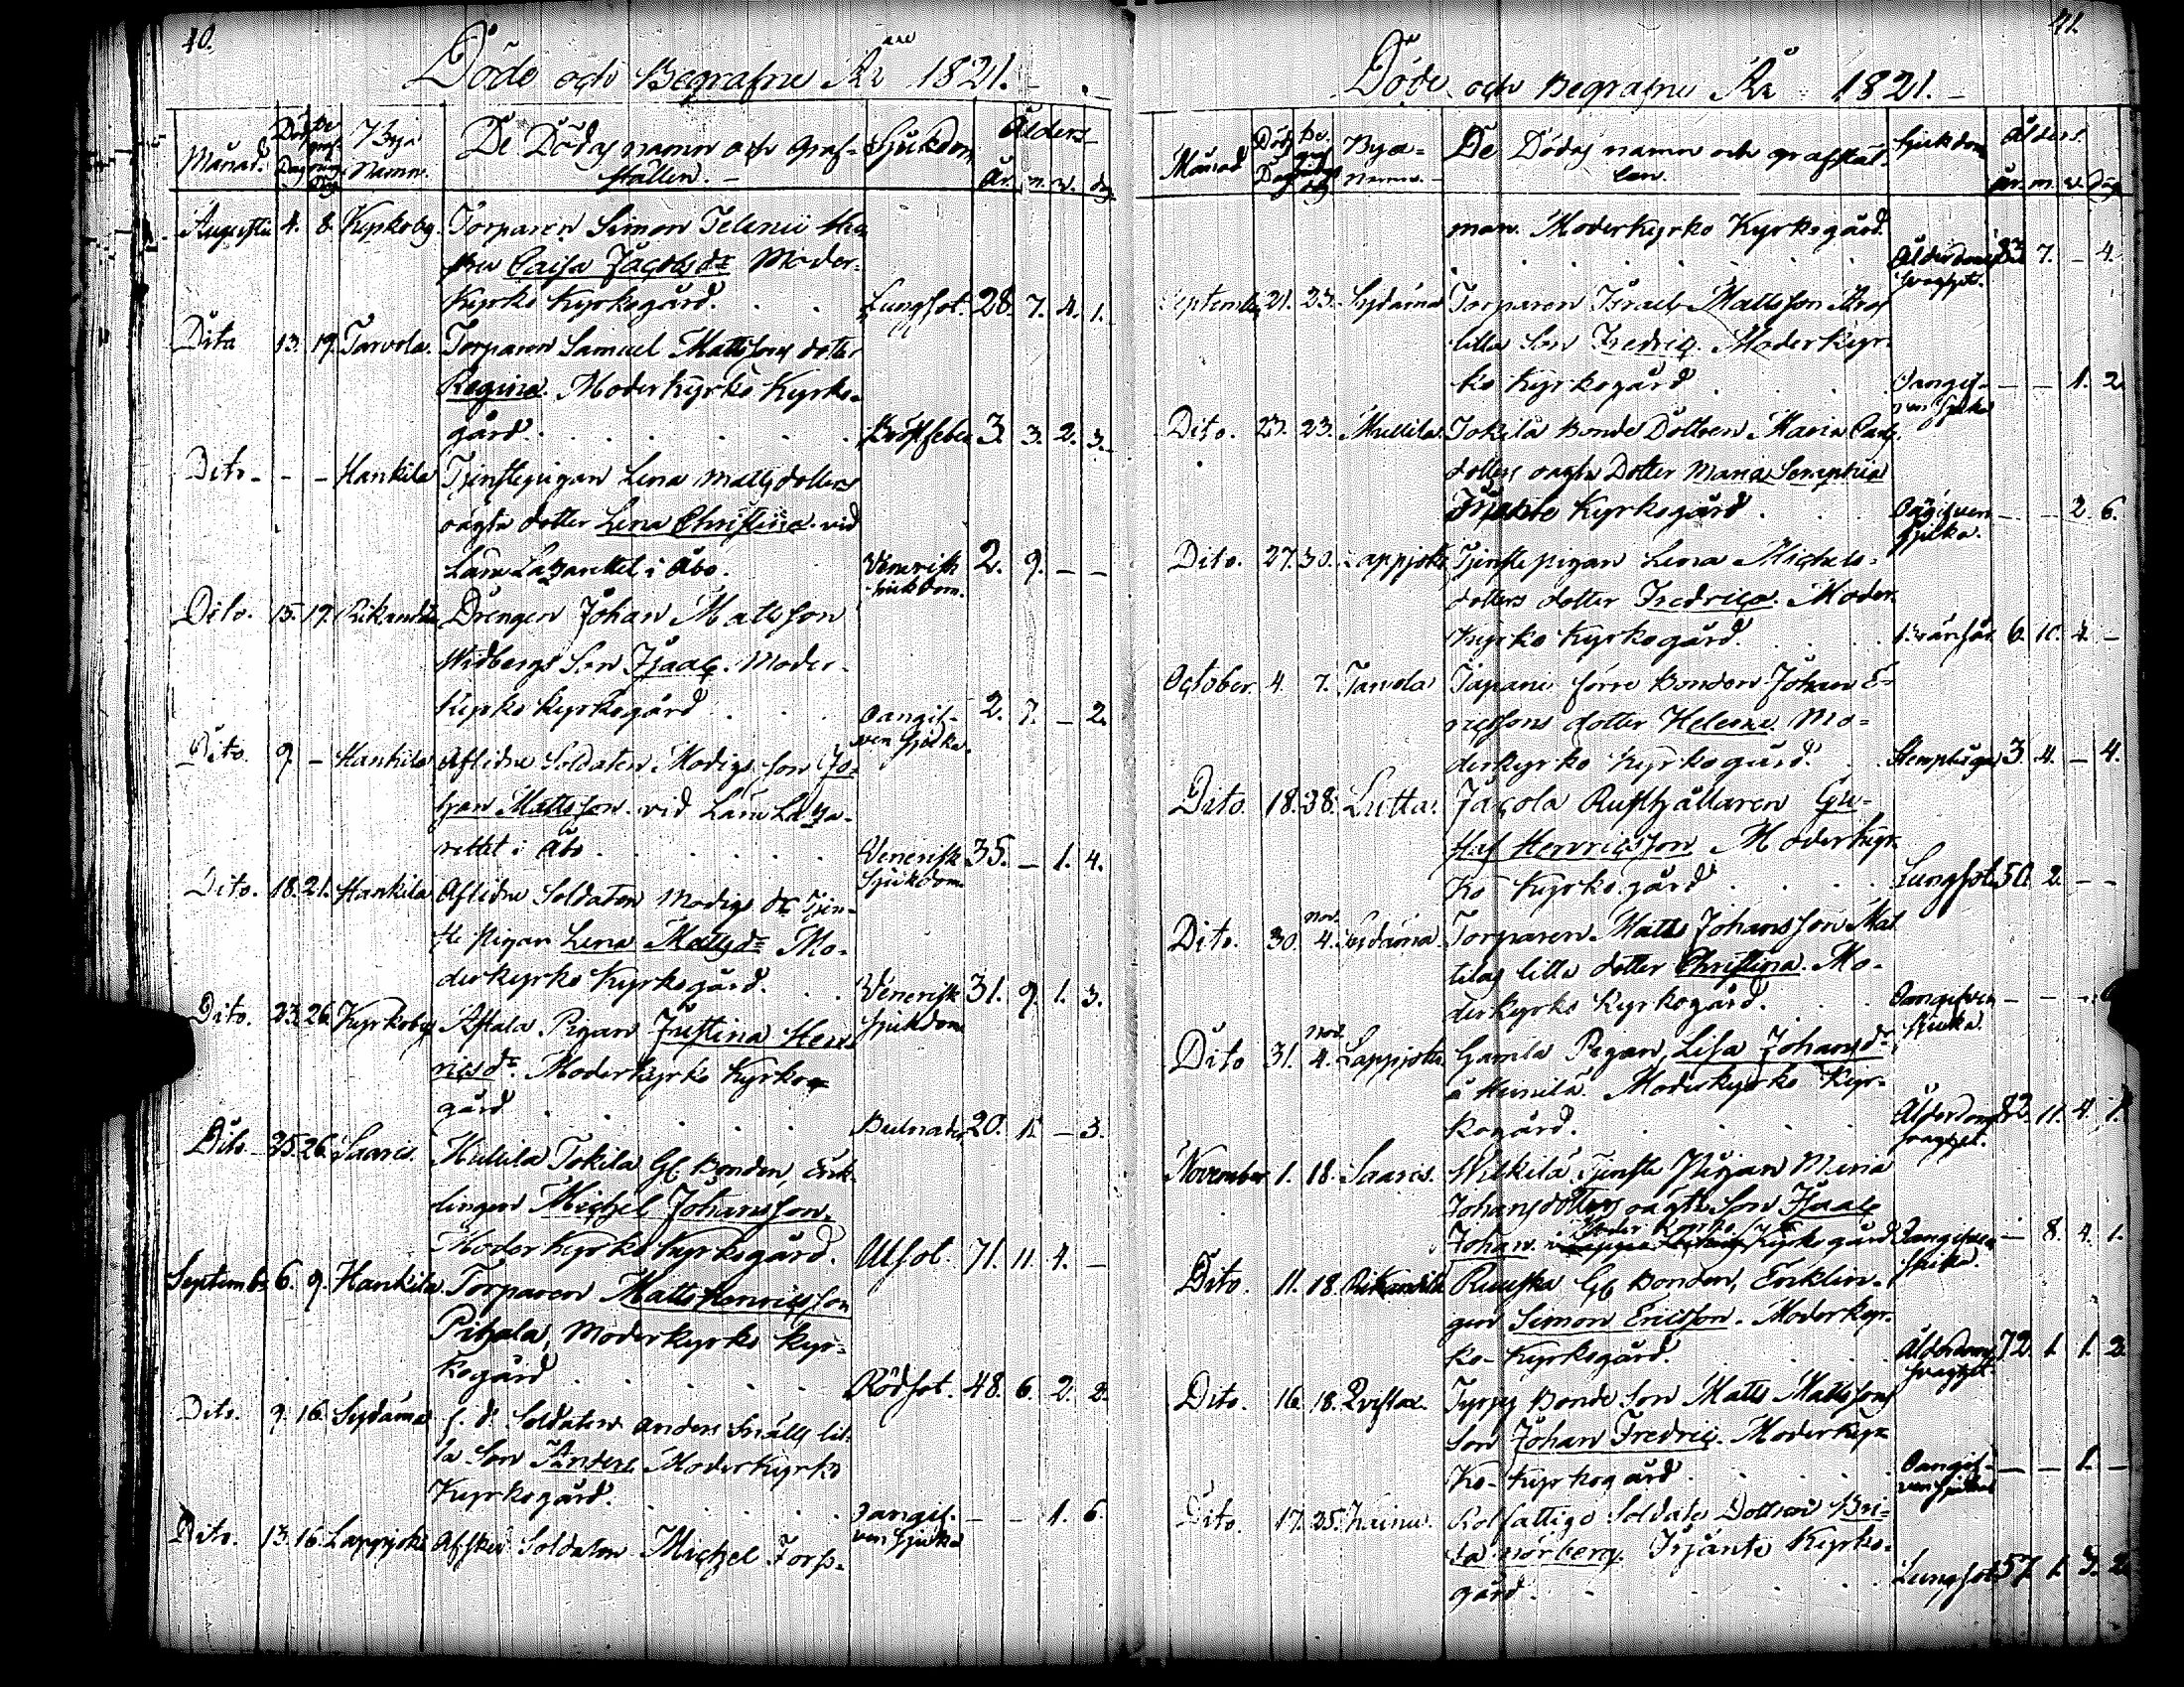 40.
Döde och Begrafne År 1821.
Månad. Död Dag Begrafnings Dag Byja Namn. De Dödas namn och Grafställen. Sjukdom Ålders År. m. v. dag
Augusti 4. 8. Kyrkoby. Torparen Simon Telenii Hu-
stru Caisa Jacobs dr Moder-
kyrko Kyrkogård. Lungsot. 28. 7. 4. 1.
Dito 13. 19. Tarvola. Torparen Samuel Mattssons dotter
Regina. Moderkyrko Kyrko-
gård. Bröstfeber 3. 3. 2. 3.
Dito - - - Hankila Tjenstepigan Lena Mattsdotters
oägta dotter Lena Christina vid
Läns Lazarettet i Åbo. Venerisk sjukdom. 2. 9. - -
Dito. 15. 19. Rikandila Drengen Johan Mattsson
Widbergs Son Isaac. Moder-
kyrko kyrkogård Oangif-
ven sjuka. 2. 7. - 2.
Dito. 9. - Hankila Aflidne Soldaten Modigs son Jo-
han Mattsson. vid Läns Laza-
rettet i Åbo. Venerisk Sjukdom 35. - 1. 4.
Dito. 18. 21. Hankila Aflidne Soldaten Modigs dr Tjen-
ste pigan Lena Mattsdr Mo-
derkyrko Kyrkogård. Venerisk sjukdom 31. 9. 1. 3.
Dito. 23. 26. Kyrkoby Astala Pigan Justina Hen-
ricsdr. Moderkyrko Kyrko-
gård Bulnader 20. 1. - 3.
Dito 25. 26. Saaris. Mulila Tokila Gl. Bonden, Enk-
lingen Michel Johansson.
Moderkyrko Kyrkogård. Utsot. 71. 11. 4. -
Septembr 6. 9. Hankila. Torparen Matts Henricsson
Pihala, Moderkyrko kyr-
kogård Rödsot. 48. 6. 2. 2.
Dito. 9. 16. Sydämä f. d. Soldaten Anders Snälls lil-
la Son Anders Moderkyrko
Kyrkogård. Oangif-
ven sjuka - - 1. 6.
Dito. 13. 16. Lappijoki Afsked Soldaten Michel Torp-
41.
Döde och Begrafne År 1821.
Månad Död Dag Begrafnings dag Byja-
Namn. De Dödas namn och grafstäl-
len. Sjukdom Ålders år. m. v. dag
man. Moderkyrko Kyrkogård.
Ålderdoms svaghet. 83 7. - 4.
September 21. 23. Sydämä Torparen Israel Mattsson
lilla Son Fredric. Moderkyr-
ko Kyrkogård Oangif-
ven sjuka - - 1. 2.
Dito. 23. 23. Mullila. Tokila Bonde Dottren Maria
dotters oägta Dotter Maria Seraphia
Irjänte Kyrkogård Oägifven
sjuka. - - 2. 6.
Dito. 27. 30. Lappijoki Tjenstepigan Lena Michels-
dotters dotter Fredrica. Moder-
kyrko Kyrkogård. 6. 10. 2. -
October 4. 7. Tarvola Tapani förre Bonden Johan E-
ricssons dotter Helena. Mo-
derkyrko Kyrkogård. 3. 4. - 4.
Dito 18. 38. Lutta. Jacola Rusthållaren Gu-
staf Henricsson Moderkyr-
ko Kyrkogård Lungsot 50. 2. - -
Dito. 30. nov. 4. Sydämä. Torparen Matts Johansson Mat-
tilas lilla dotter Christina. Mo-
derkyrko Kyrkogård. Oangifven
sjuka. - - -
Dito 31. nov. 4. Lappijoki Gamla Pigan Lisa Johansdr
å Hemilä. Moderkyrko Kyr-
kogård. Ålderdoms svaghet. 82. 11. 4. 1.
November 1. 18. Saaris. Wilkilä Tjenste Pigan Maria
Johansdotters oägta Son Isaac
Johan. Moder Kyrko Kyrkogård Oangifven
sjuka. - 8. 4. 1.
Dito. 11. 18 Rikandila Ruuska Gl. Bonden, Enklin-
gen Simon Ericsson. Moderkyr-
ko-Kyrkogård. Ålderdoms svaghet. 72. 1. 1. 2.
Dito. 16. 18. Tyrpy Bonde Son Matts Mattssons
Son Johan Fredric. Moderkyr-
ko-Kyrkogård Oangif-
ven sjuka - - 1. -
Dito. 17. 25. Kainu. Rotfattige Soldats Dottren Bri-
ta Norberg. Irjänte Kyrko-
gård. Lungsot 57. 1. 3. 2.